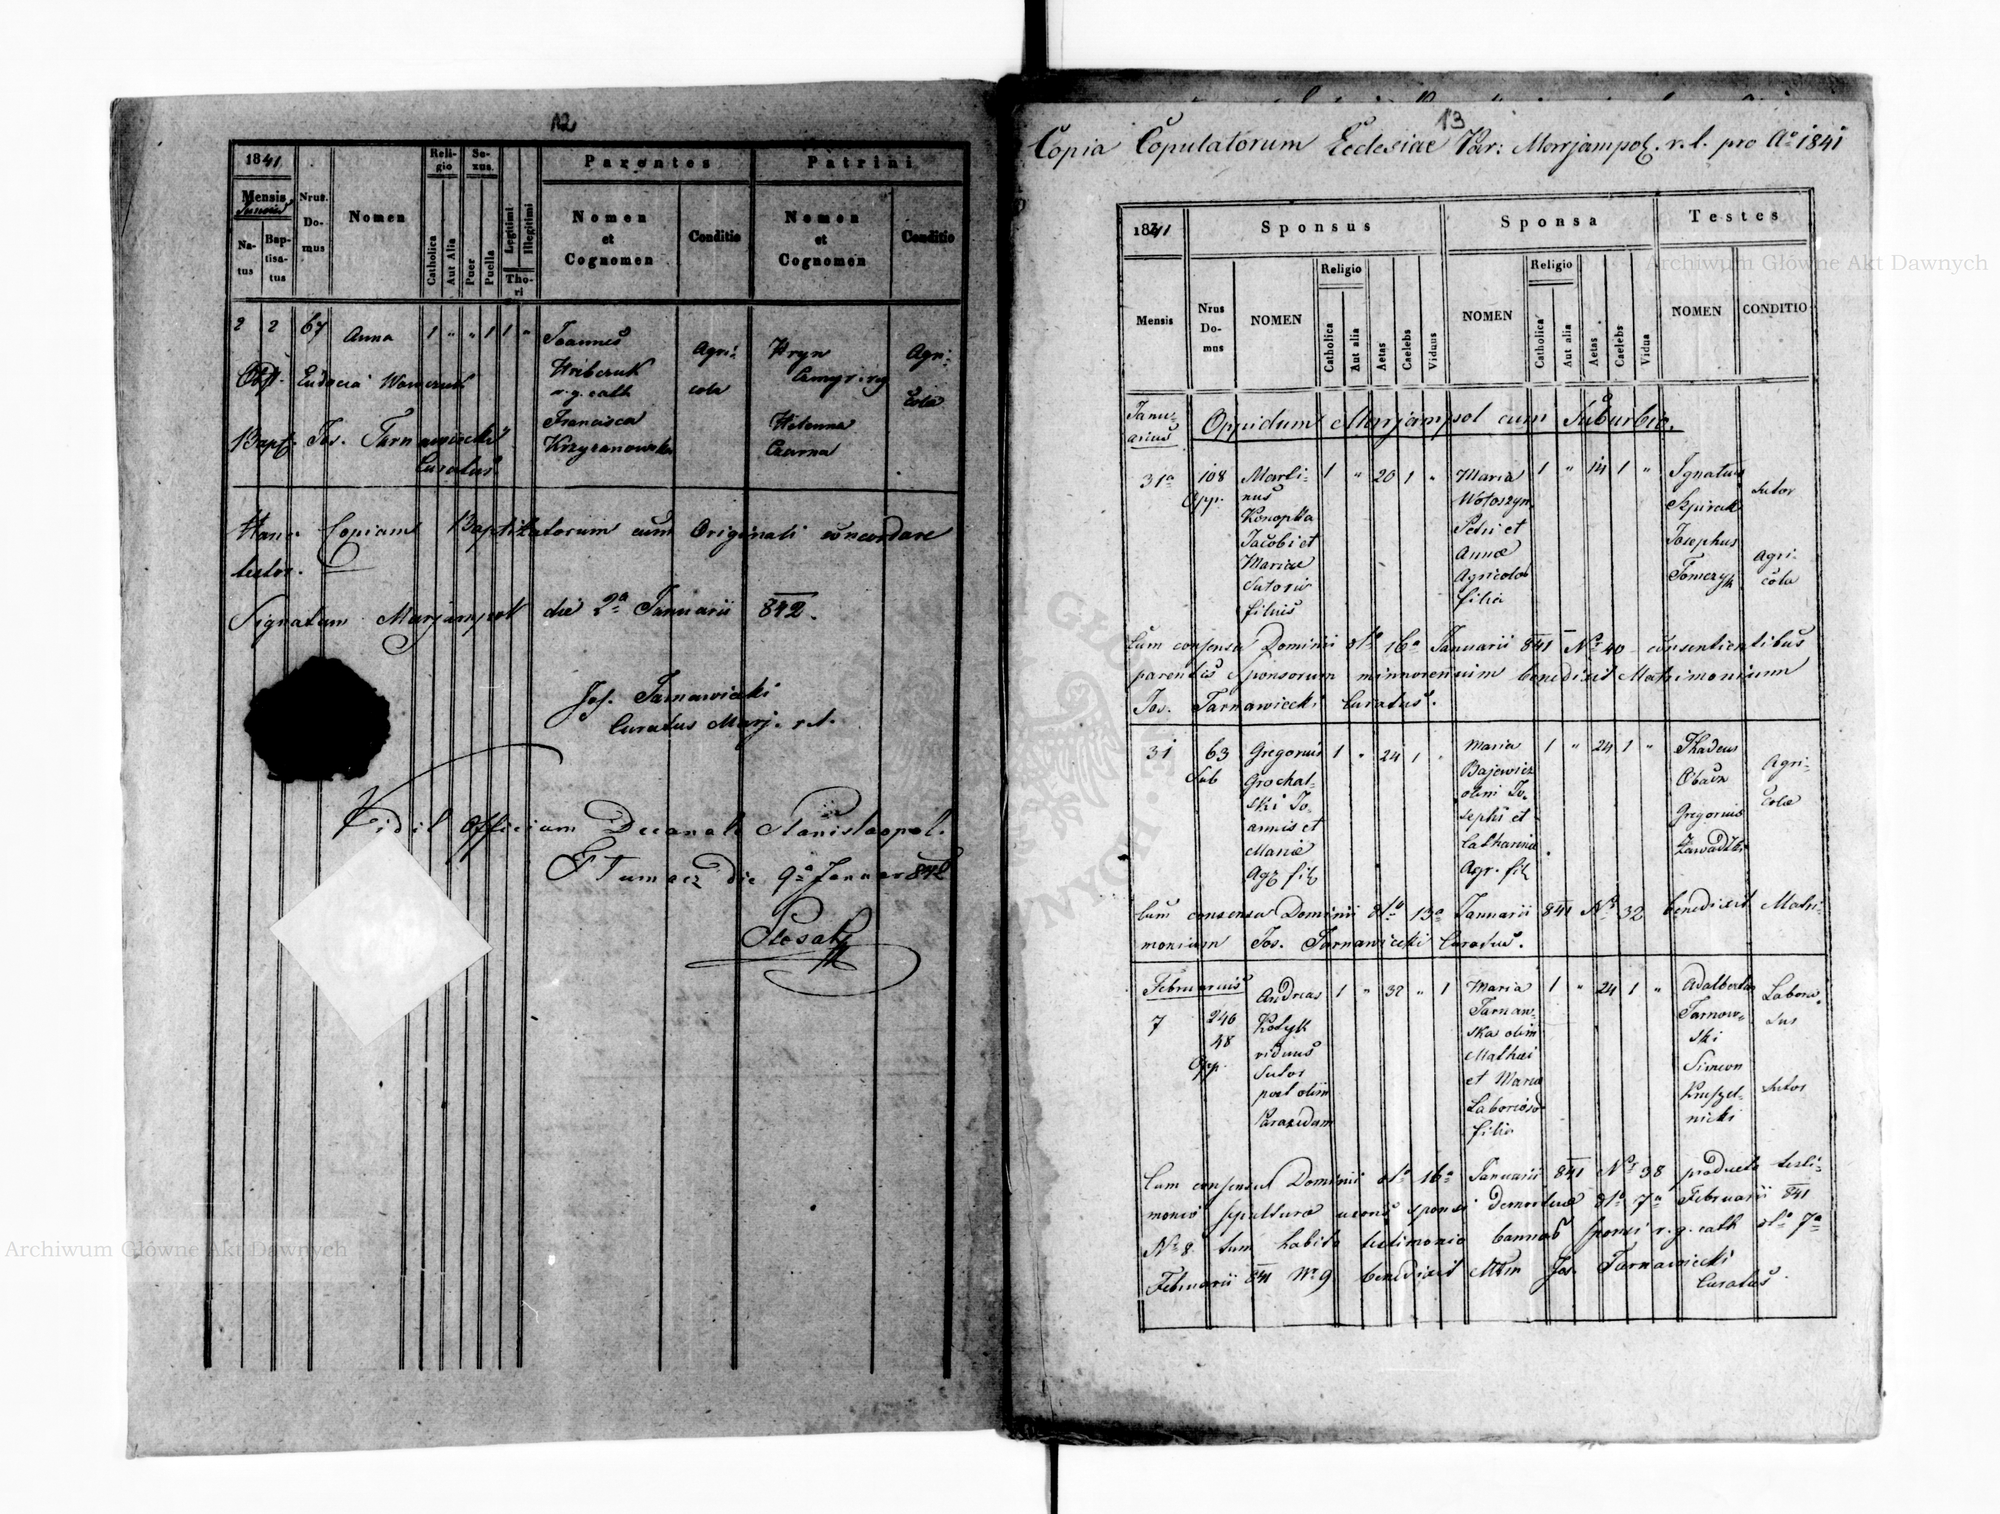 12
1841
Mensis
Na-
tus
Bap-
tisa-
tus
Nrus.
Do-
mus
Nomen
Reli-
gio
Catholica
Aut Alia
Se-
xus.
Puer
Puella
Legitimi
Illegitimi
Tho-
ri
Parentes
Nomen
et
Cognomen
Conditio
Patrini
Nomen
et
Cognomen
Conditio
2 2 67 Anna 1 " " 1 1 "
Joannes
Hribczuk
r. g. cath
Francisca
Krzyzanowska
Agri-
cola
Hryn
Helenna
Czarna
Agri-
cola
Obst. Eudocia
Bapt. Jos. Tarnawiecki
Curatus
Hanc Copiam Baptizatorum cum Originali concordare
testor.
Signatum Marjampol die 2a Januarii 842.
Jos. Tarnawiecki
Curatus Marj. r. l.
Vidit Officium Decanale Stanislaopol.
Tłumacz die 9a Januar 842
13
Copia Copulatorum Ecclesiae Par: Marjampol. r. l. pro Ao 1841
1841
Mensis
Sponsus
Nrus
Do-
mus
NOMEN
Religio
Catholica
Aut alia
Aetas
Caelebs
Viduus
Sponsa
NOMEN
Religio
Catholica
Aut alia
Aetas
Caelebs
Vidua
Testes
NOMEN
CONDITIO
Janu-
arius
Oppidum Marjampol cum Suburbio.
31a 108
Opp.
Marti-
nus
Konopka
Jacobi et
Mariae
Sutoris
filius
1 " 20 1 "
Maria
Wołoszyn
Petri et
Annae
Agricolae
filia
1 " 14 1 "
Ignatius
Szpirak
Josephus
Tomczyk
Sutor
Agri-
cola
Cum consensu Dominii dto 16a Januarii 841 No 40 consentientibus
parentis sponsorum minnorennium benedixit Matrimonium
Jos. Tarnawiecki Curatus.
31 63
Sub
Gregorius
Grochal-
ski Jo-
annis et
Mariae
Agr fil
1 " 24 1 "
Maria
Bajewicz
olim Jo-
sephi et
Catharinae
Agr. fil
1 " 24 1 "
Thadeus
Gregorius
Zawadzki
Agri-
colae
Cum consensu Dominii dto 13a Januarii 841 No 32 benedixit Matri-
monium Jos. Tarnawiecki Curatus.
Februarius
7
246
48
Opp.
Andreas
Kotyk
viduus
Sutor
post olim
Parasedam
1 " 32 " 1
Maria
Tarnaw-
ska olim
Mathei
et Maria
Laboriosor
filia
1 " 24 1 "
Adalbertus
Tarnow-
ski
Simeon
Kruszel-
nicki
Laborio-
sus
Sutor
Cum consensu Dominii dto 16a Januarii 841 No 38 producto testi-
monio sepulturae uxoris sponsi demortuae dto 7a Februarii 841
No 8 tum habito testimonio bannor sponsi r. g. cath dto 7a
Februarii 841 No 9 benedixit Mtrm Jos. Tarnawiecki
Curatus
Archiwum Główne Akt Dawnych
Archiwum Główne Akt Dawnych